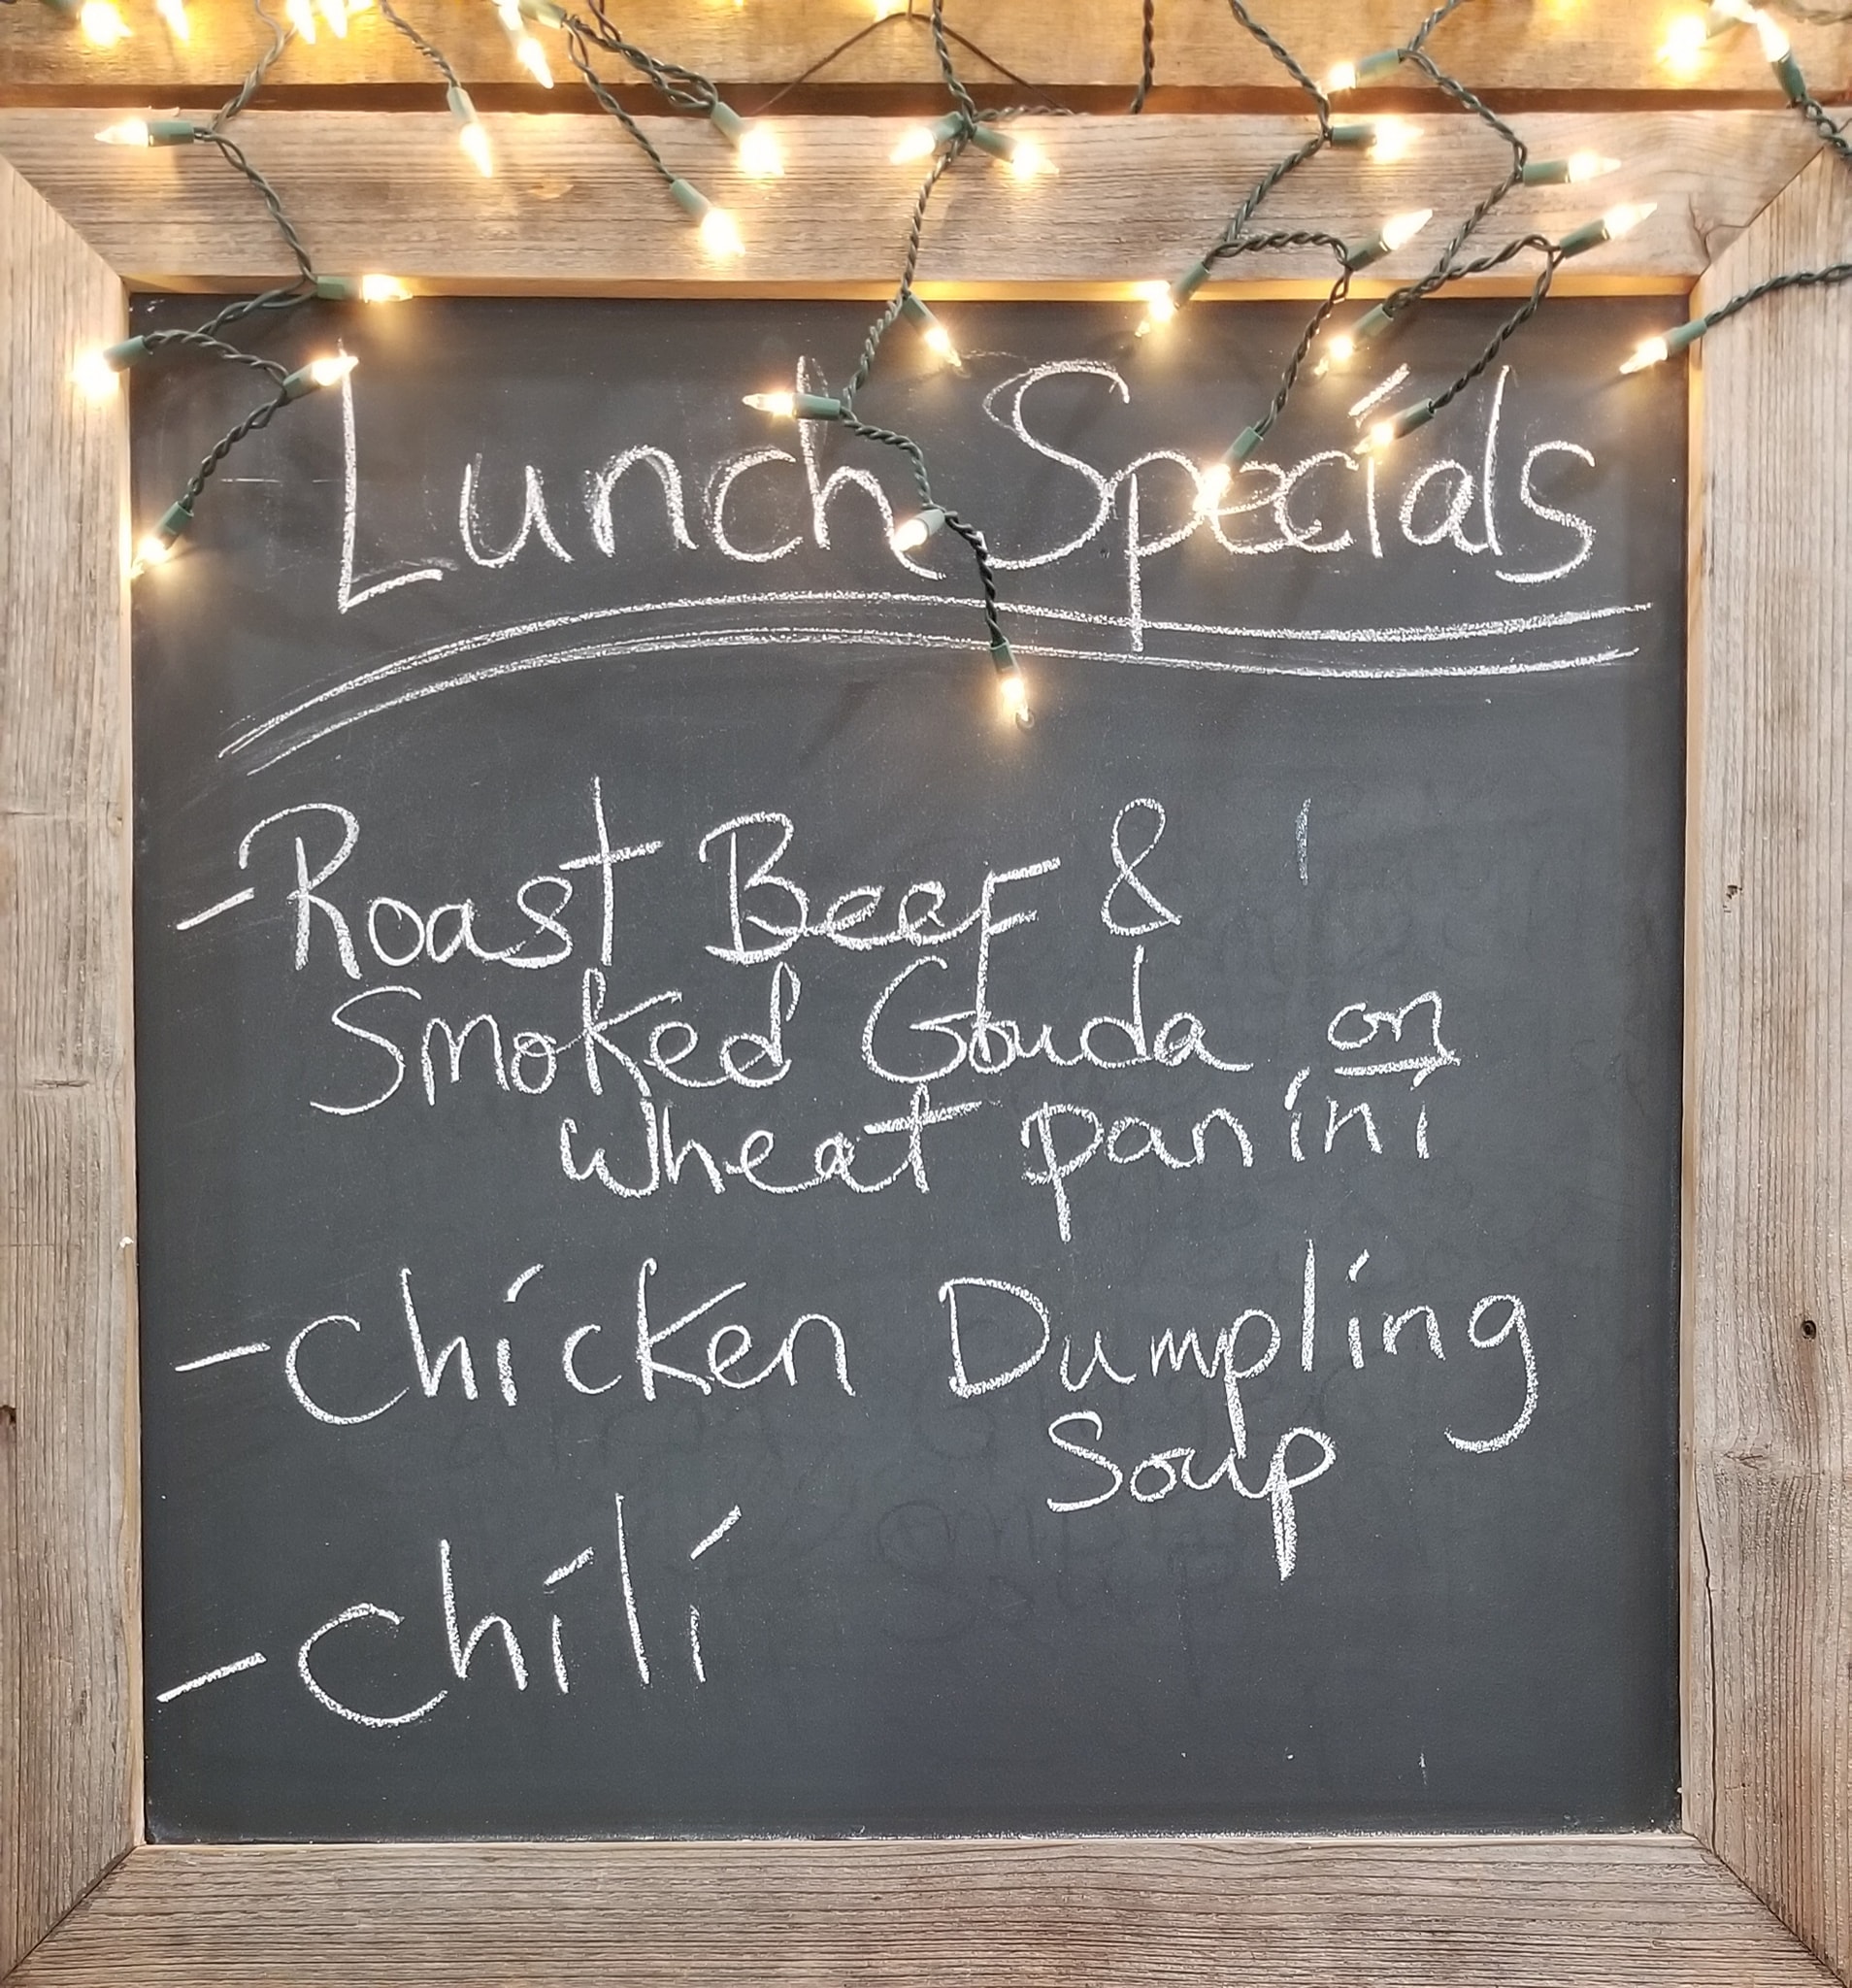 Lunch Specials
- Roast Beef &
Smoked Gouda on
wheat panini
- Chicken Dumpling
Soup
- Chili